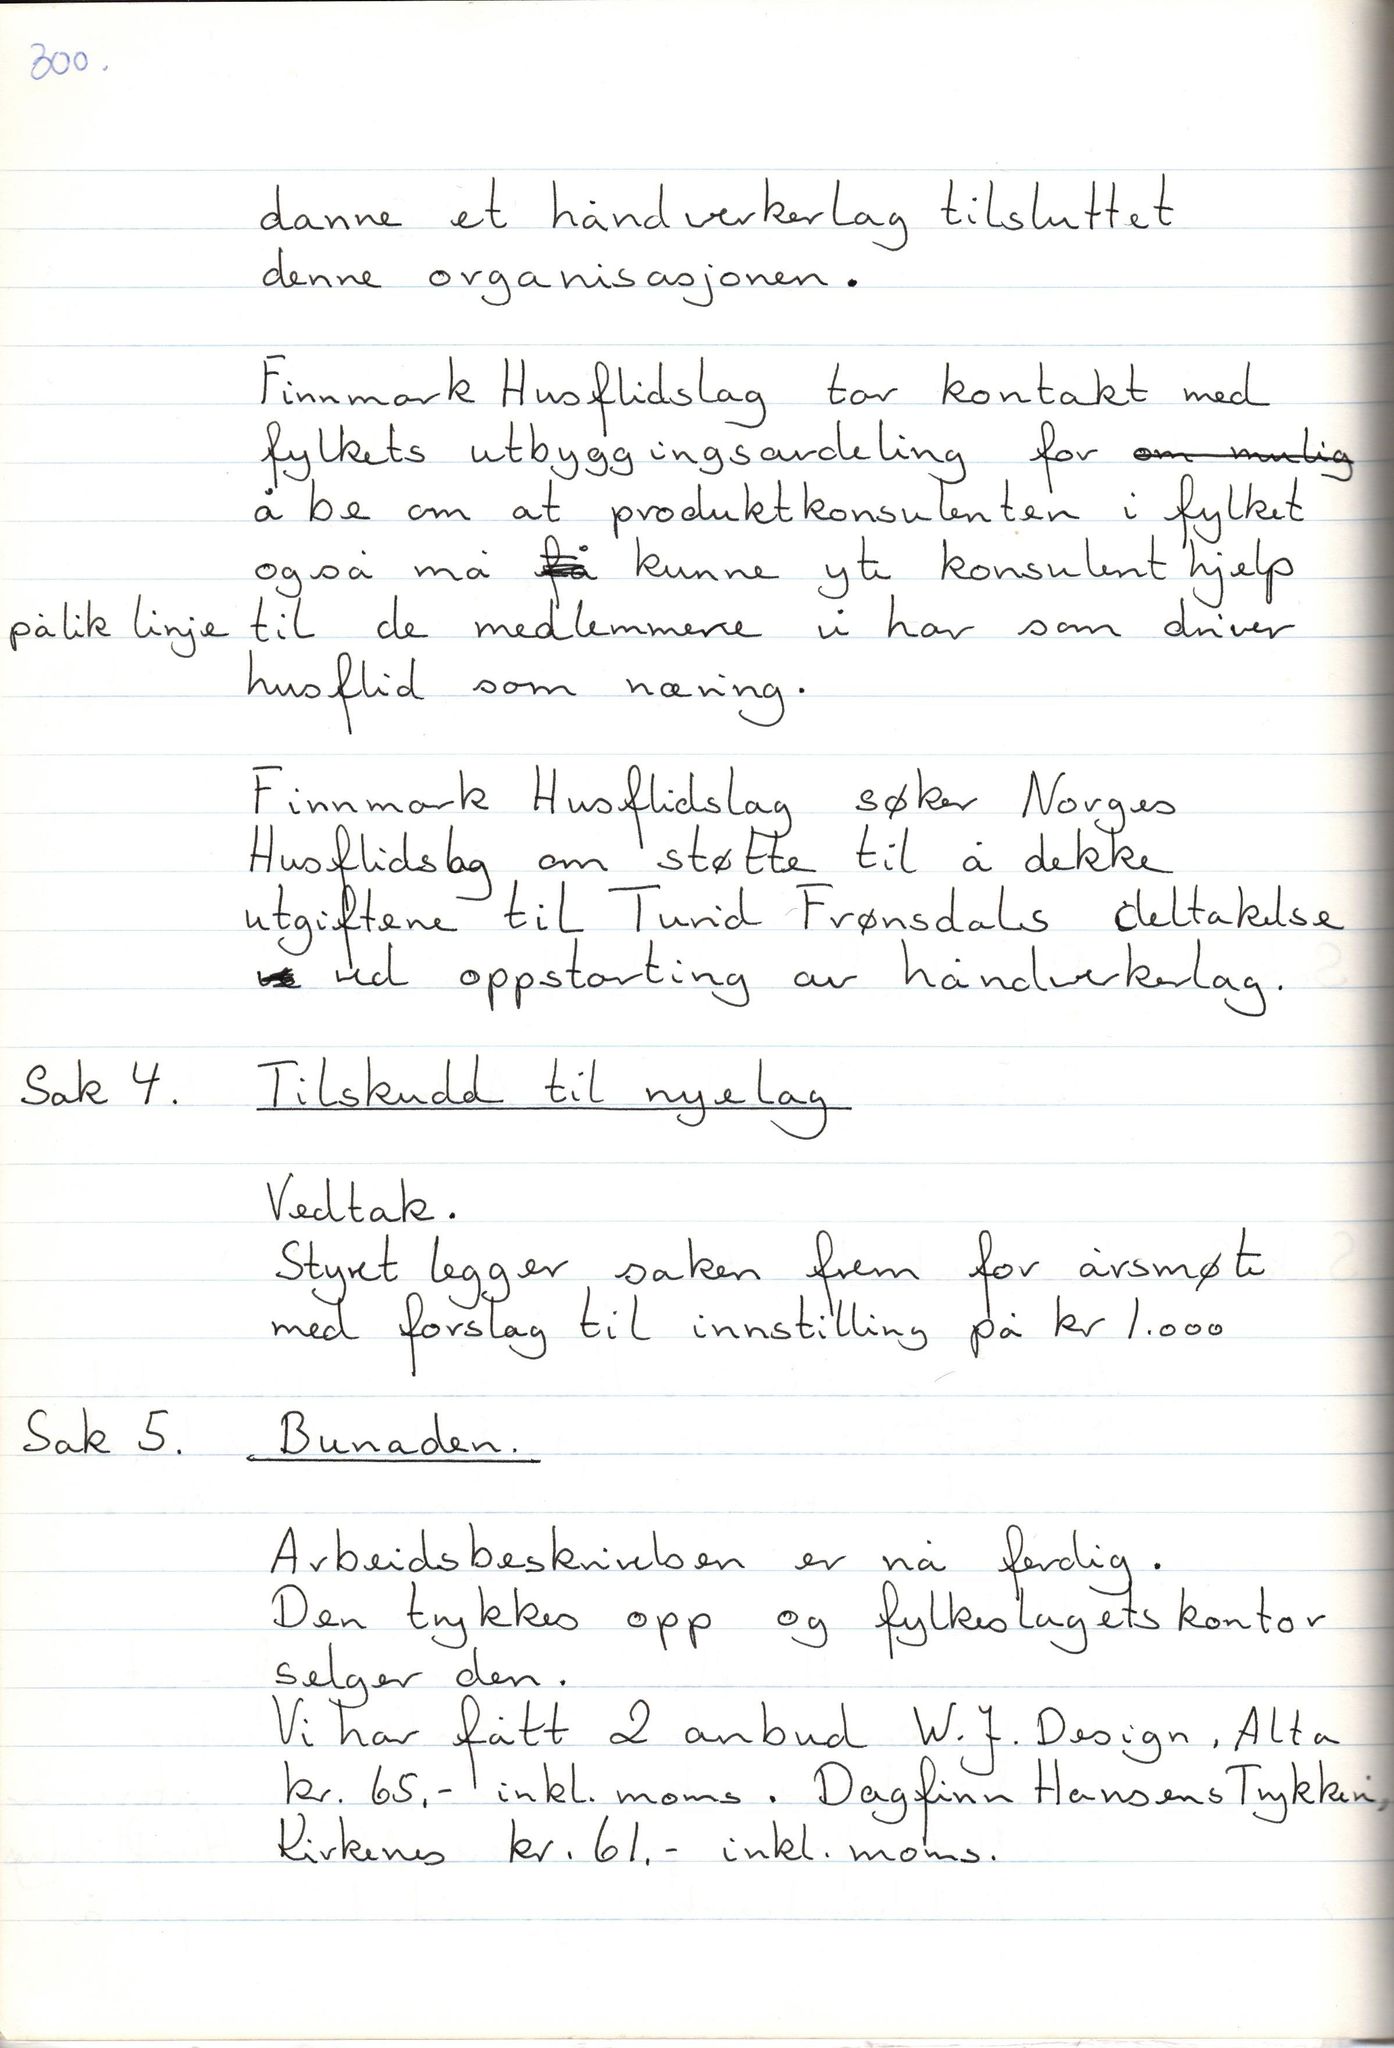 300.
danne et håndverkerlag tilsluttet
denne organisasjonen.
Finnmark Husflidslag tar kontakt med
fylkets utbyggingsavdeling for om mulig
å be om at produktkonsulenten i fylket
også må få kunne yte konsulent hjelp
på lik linje til de medlemmene vi har som driver
husflid som næring.
Finnmark Husflidslag søker Norges
Husflidslag om støtte til å dekke
utgiftene til Turid Frønsdals deltakelse
ved oppstarting av håndverkerlag.
Sak 4. Tilskudd til nye lag
Vedtak.
Styret legger saken frem for årsmøte
med forslag til innstilling på kr 1.000
Sak 5. Bunaden.
Arbeidsbeskrivelsen er nå ferdig.
Den trykkes opp og fylkeslagets kontor
selger den.
Vi har fått 2 anbud W.J. Design, Alta
kr. 65,- inkl. moms. Dagfinn Hansens Trykkeri,
Kirkenes kr. 61,- inkl. moms.